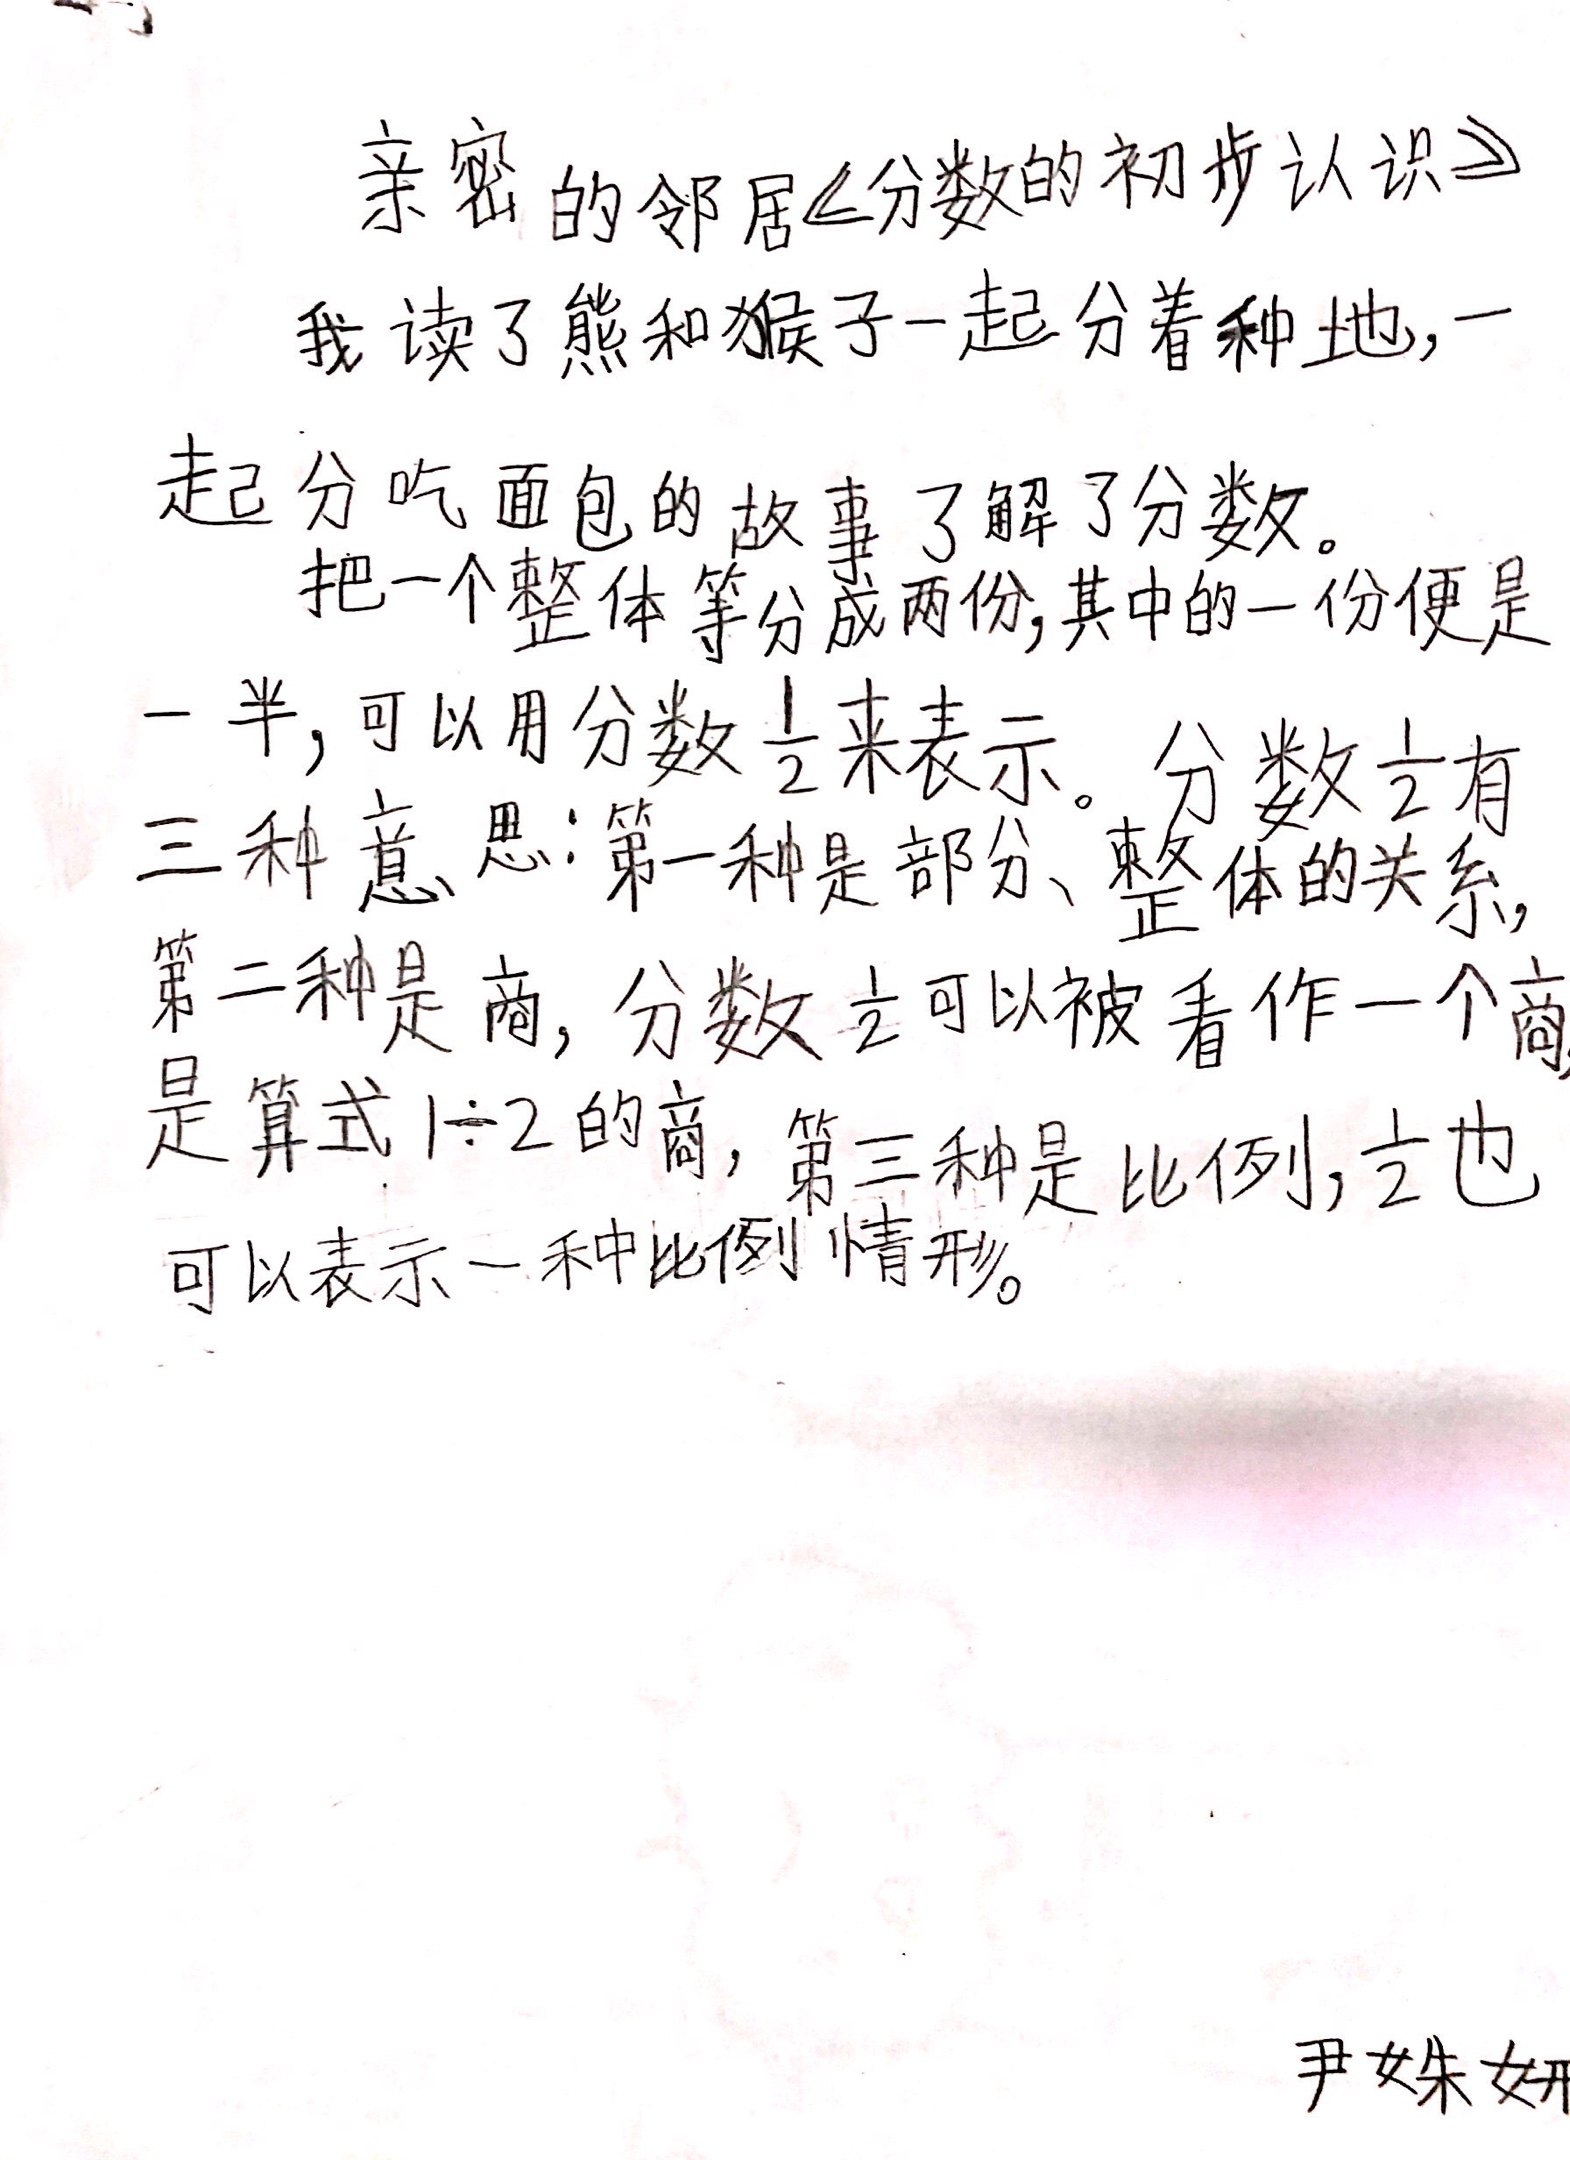 亲密的邻居《分数的初步认识》
我读了熊和猴子一起分着种地,一
起分吃面包的故事了解了分数。
把一个整体等分成两份,其中的一份便是
一半,可以用分数1/2来表示。分数1/2有
三种意思:第一种是部分、整体的关系,
第二种是商,分数1/2可以被看作一个商,
是算式1÷2的商,第三种是比例,1/2也
可以表示一种比例情形。
尹姝妍